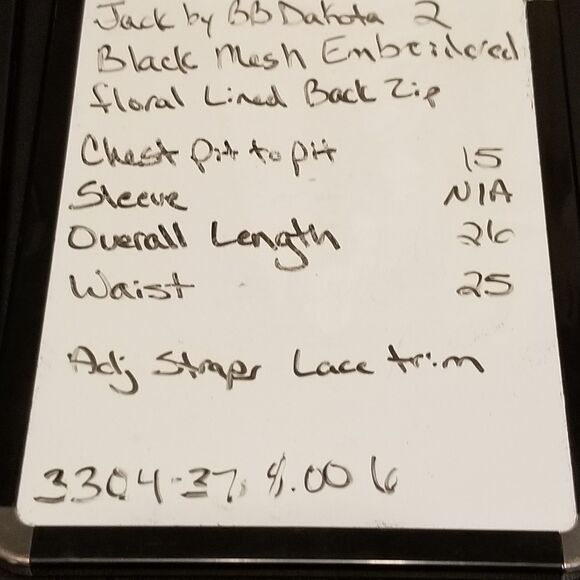 Jack by BB Dakota 2
Black Mesh Embroidered
floral Lined Back Zip
Chest pit to pit 15
Sleeve N/A
Overall Length 26
Waist 25
Adj Straps Lace trim
3304-37, 9.00 6